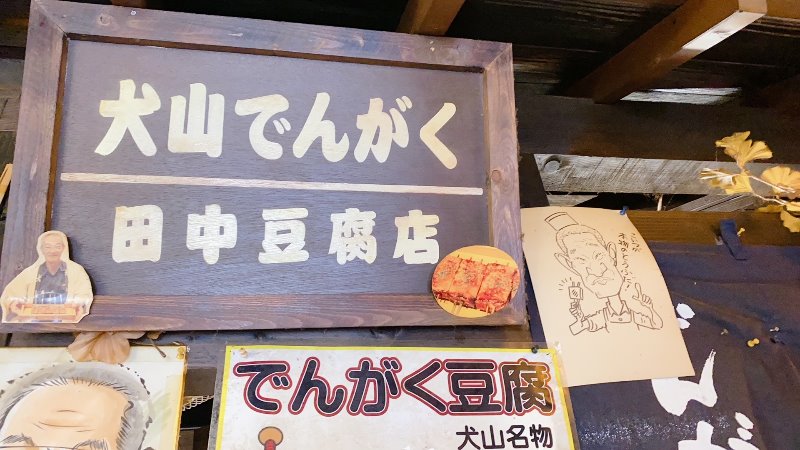 犬山でんがく
田中豆腐店
でんがく豆腐
犬山名物